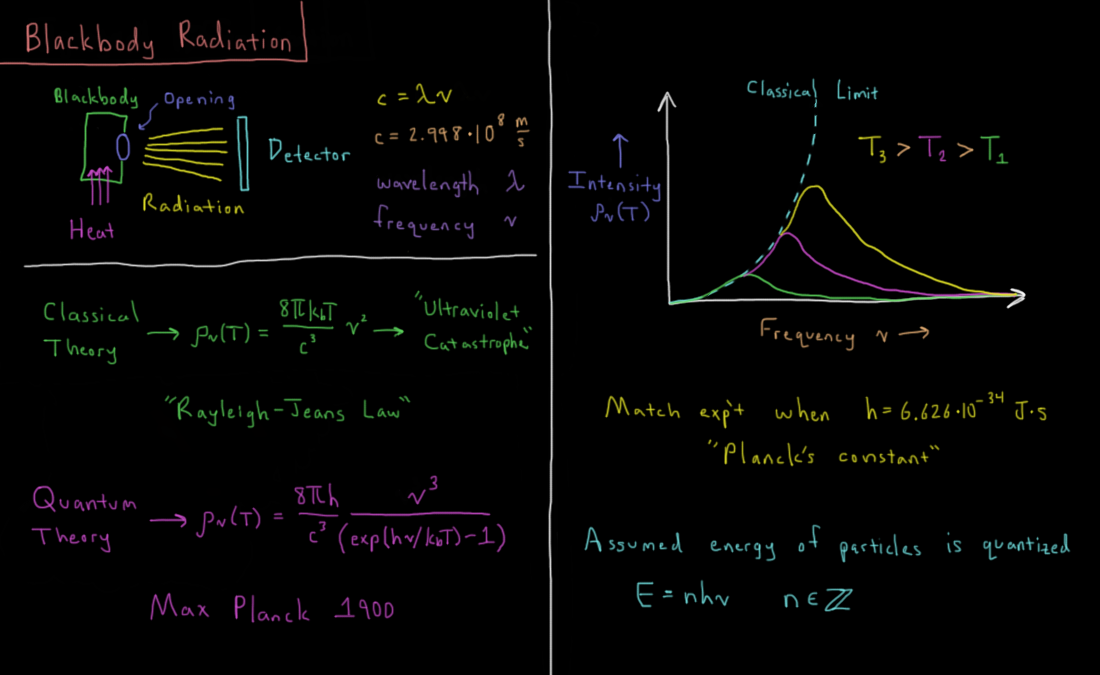 Blackbody Radiation
Blackbody Opening
Detector
Radiation
Heat
c = λν
c = 2.998·10⁸ m/s
wavelength λ
frequency ν
Classical Theory → ρν(T) = 8πkbT/c³ ν² → "Ultraviolet Catastrophe"
"Rayleigh-Jeans Law"
Quantum Theory → ρν(T) = 8πh/c³ ν³/(exp(hν/kbT)-1)
Max Planck 1900
Classical Limit
T₃ > T₂ > T₁
↑
Intensity
ρν(T)
Frequency ν →
Match exp't when h = 6.626·10⁻³⁴ J·s
"Planck's constant"
Assumed energy of particles is quantized
E = nhν n ∈ ℤ